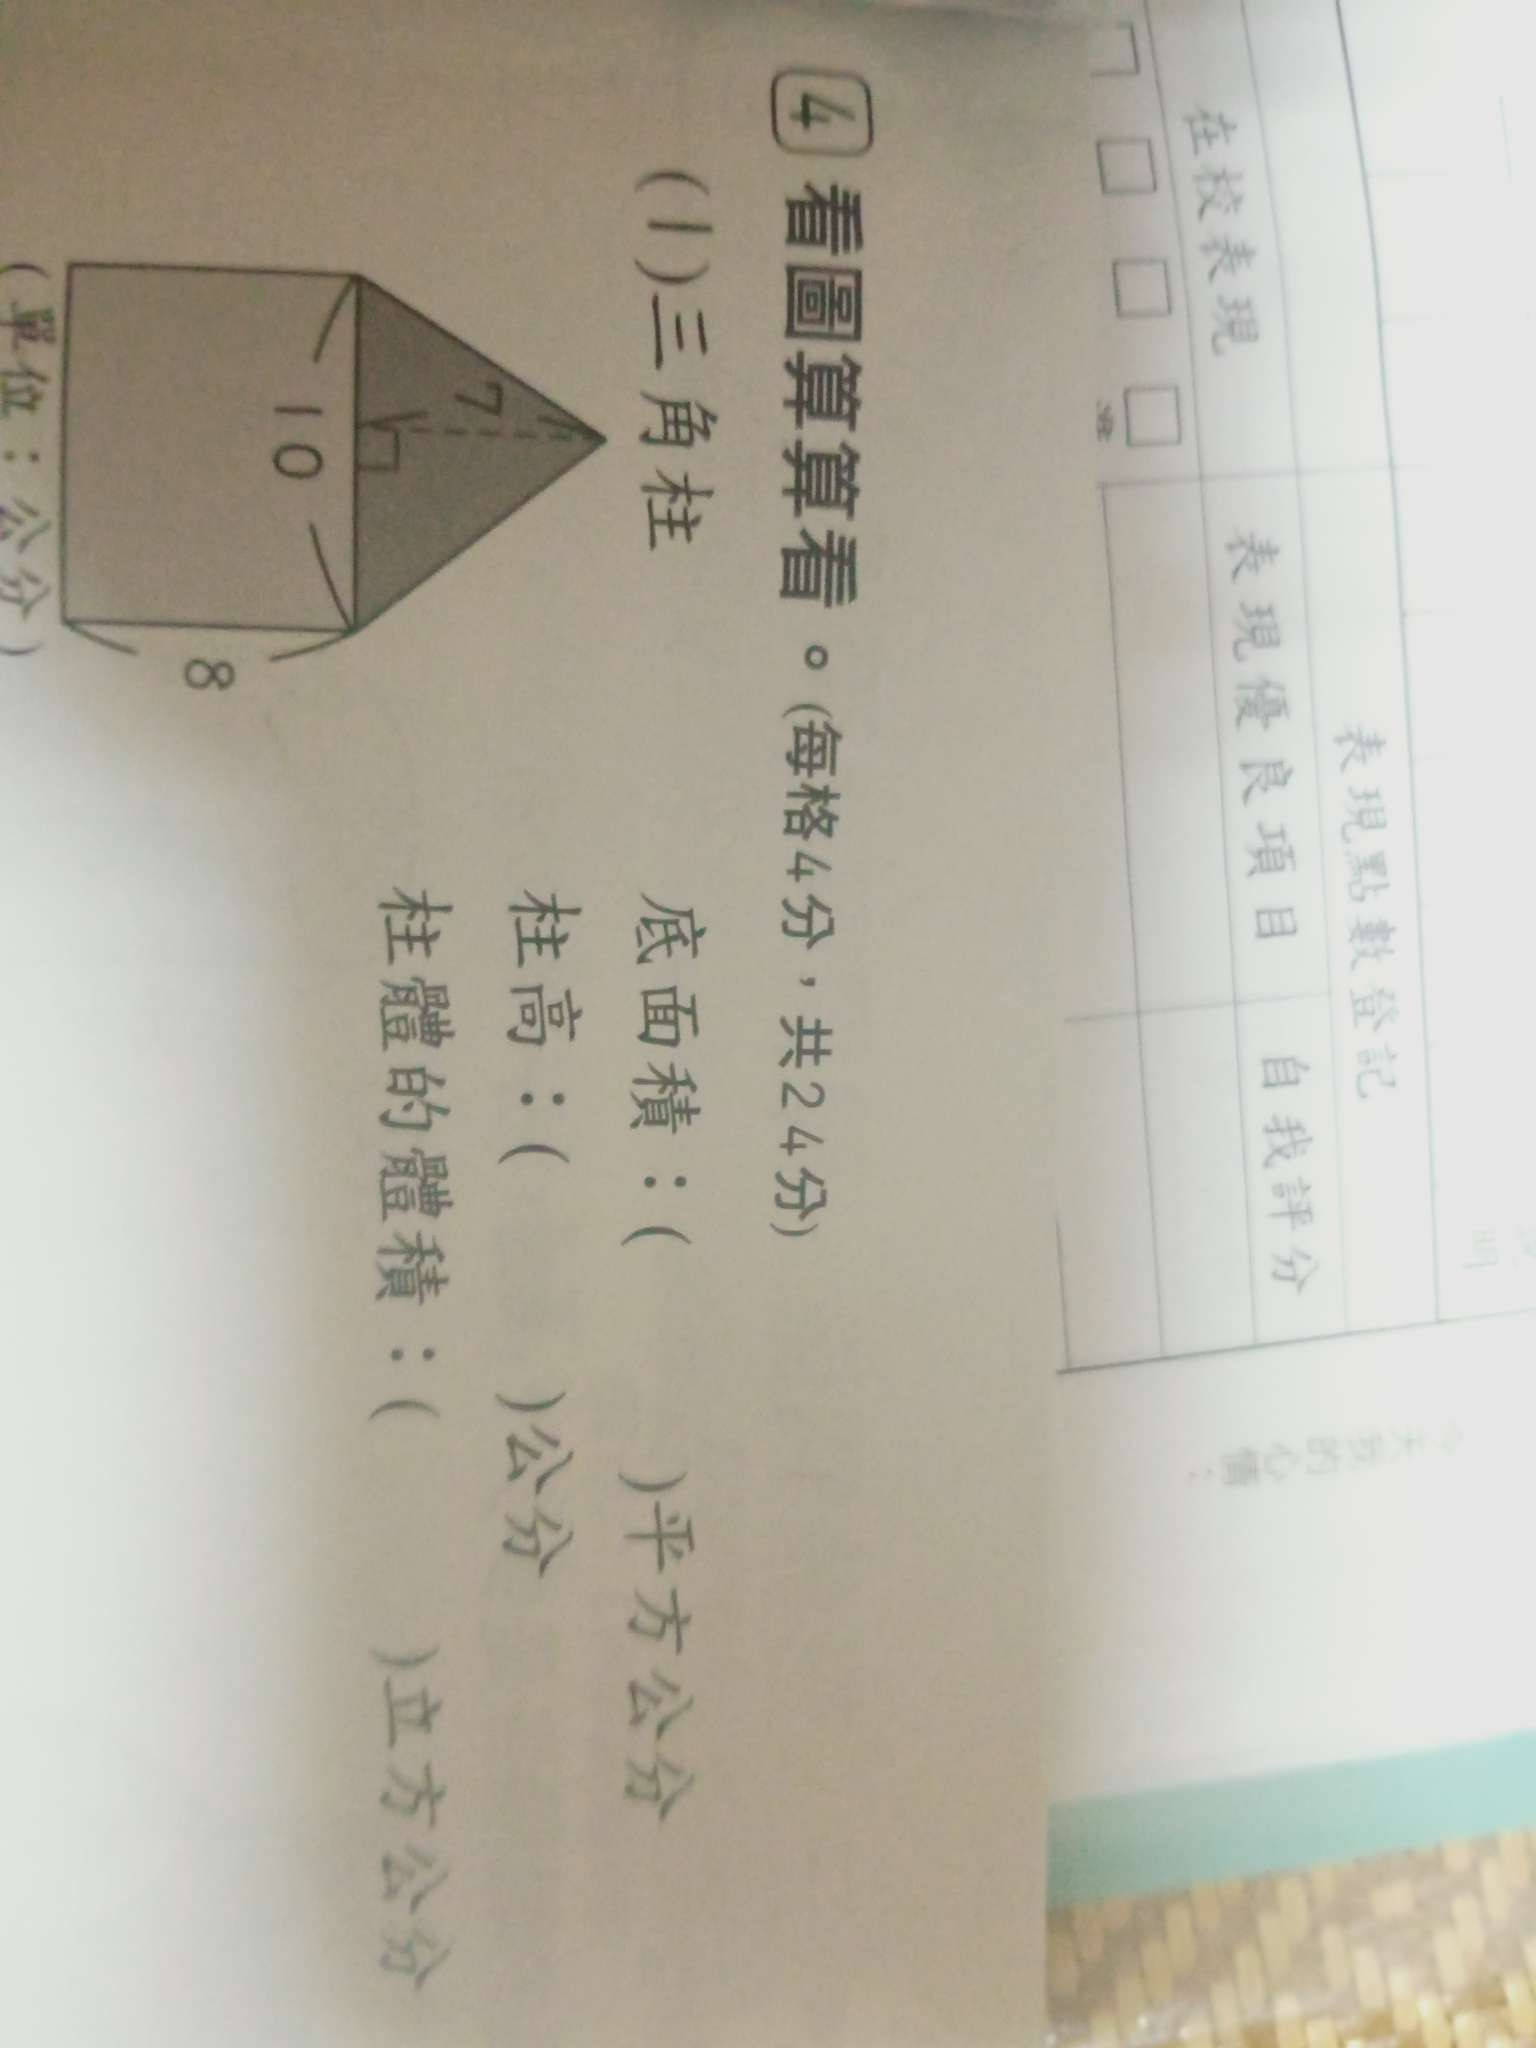 4 看圖算算看。(每格4分，共24分)
(1)三角柱
7
10
8
(單位：公分)
底面積：( )平方公分
柱高：( )公分
柱體的體積：( )立方公分
表現點數登記
在校表現 表現優良項目 自我評分
天我的心情：